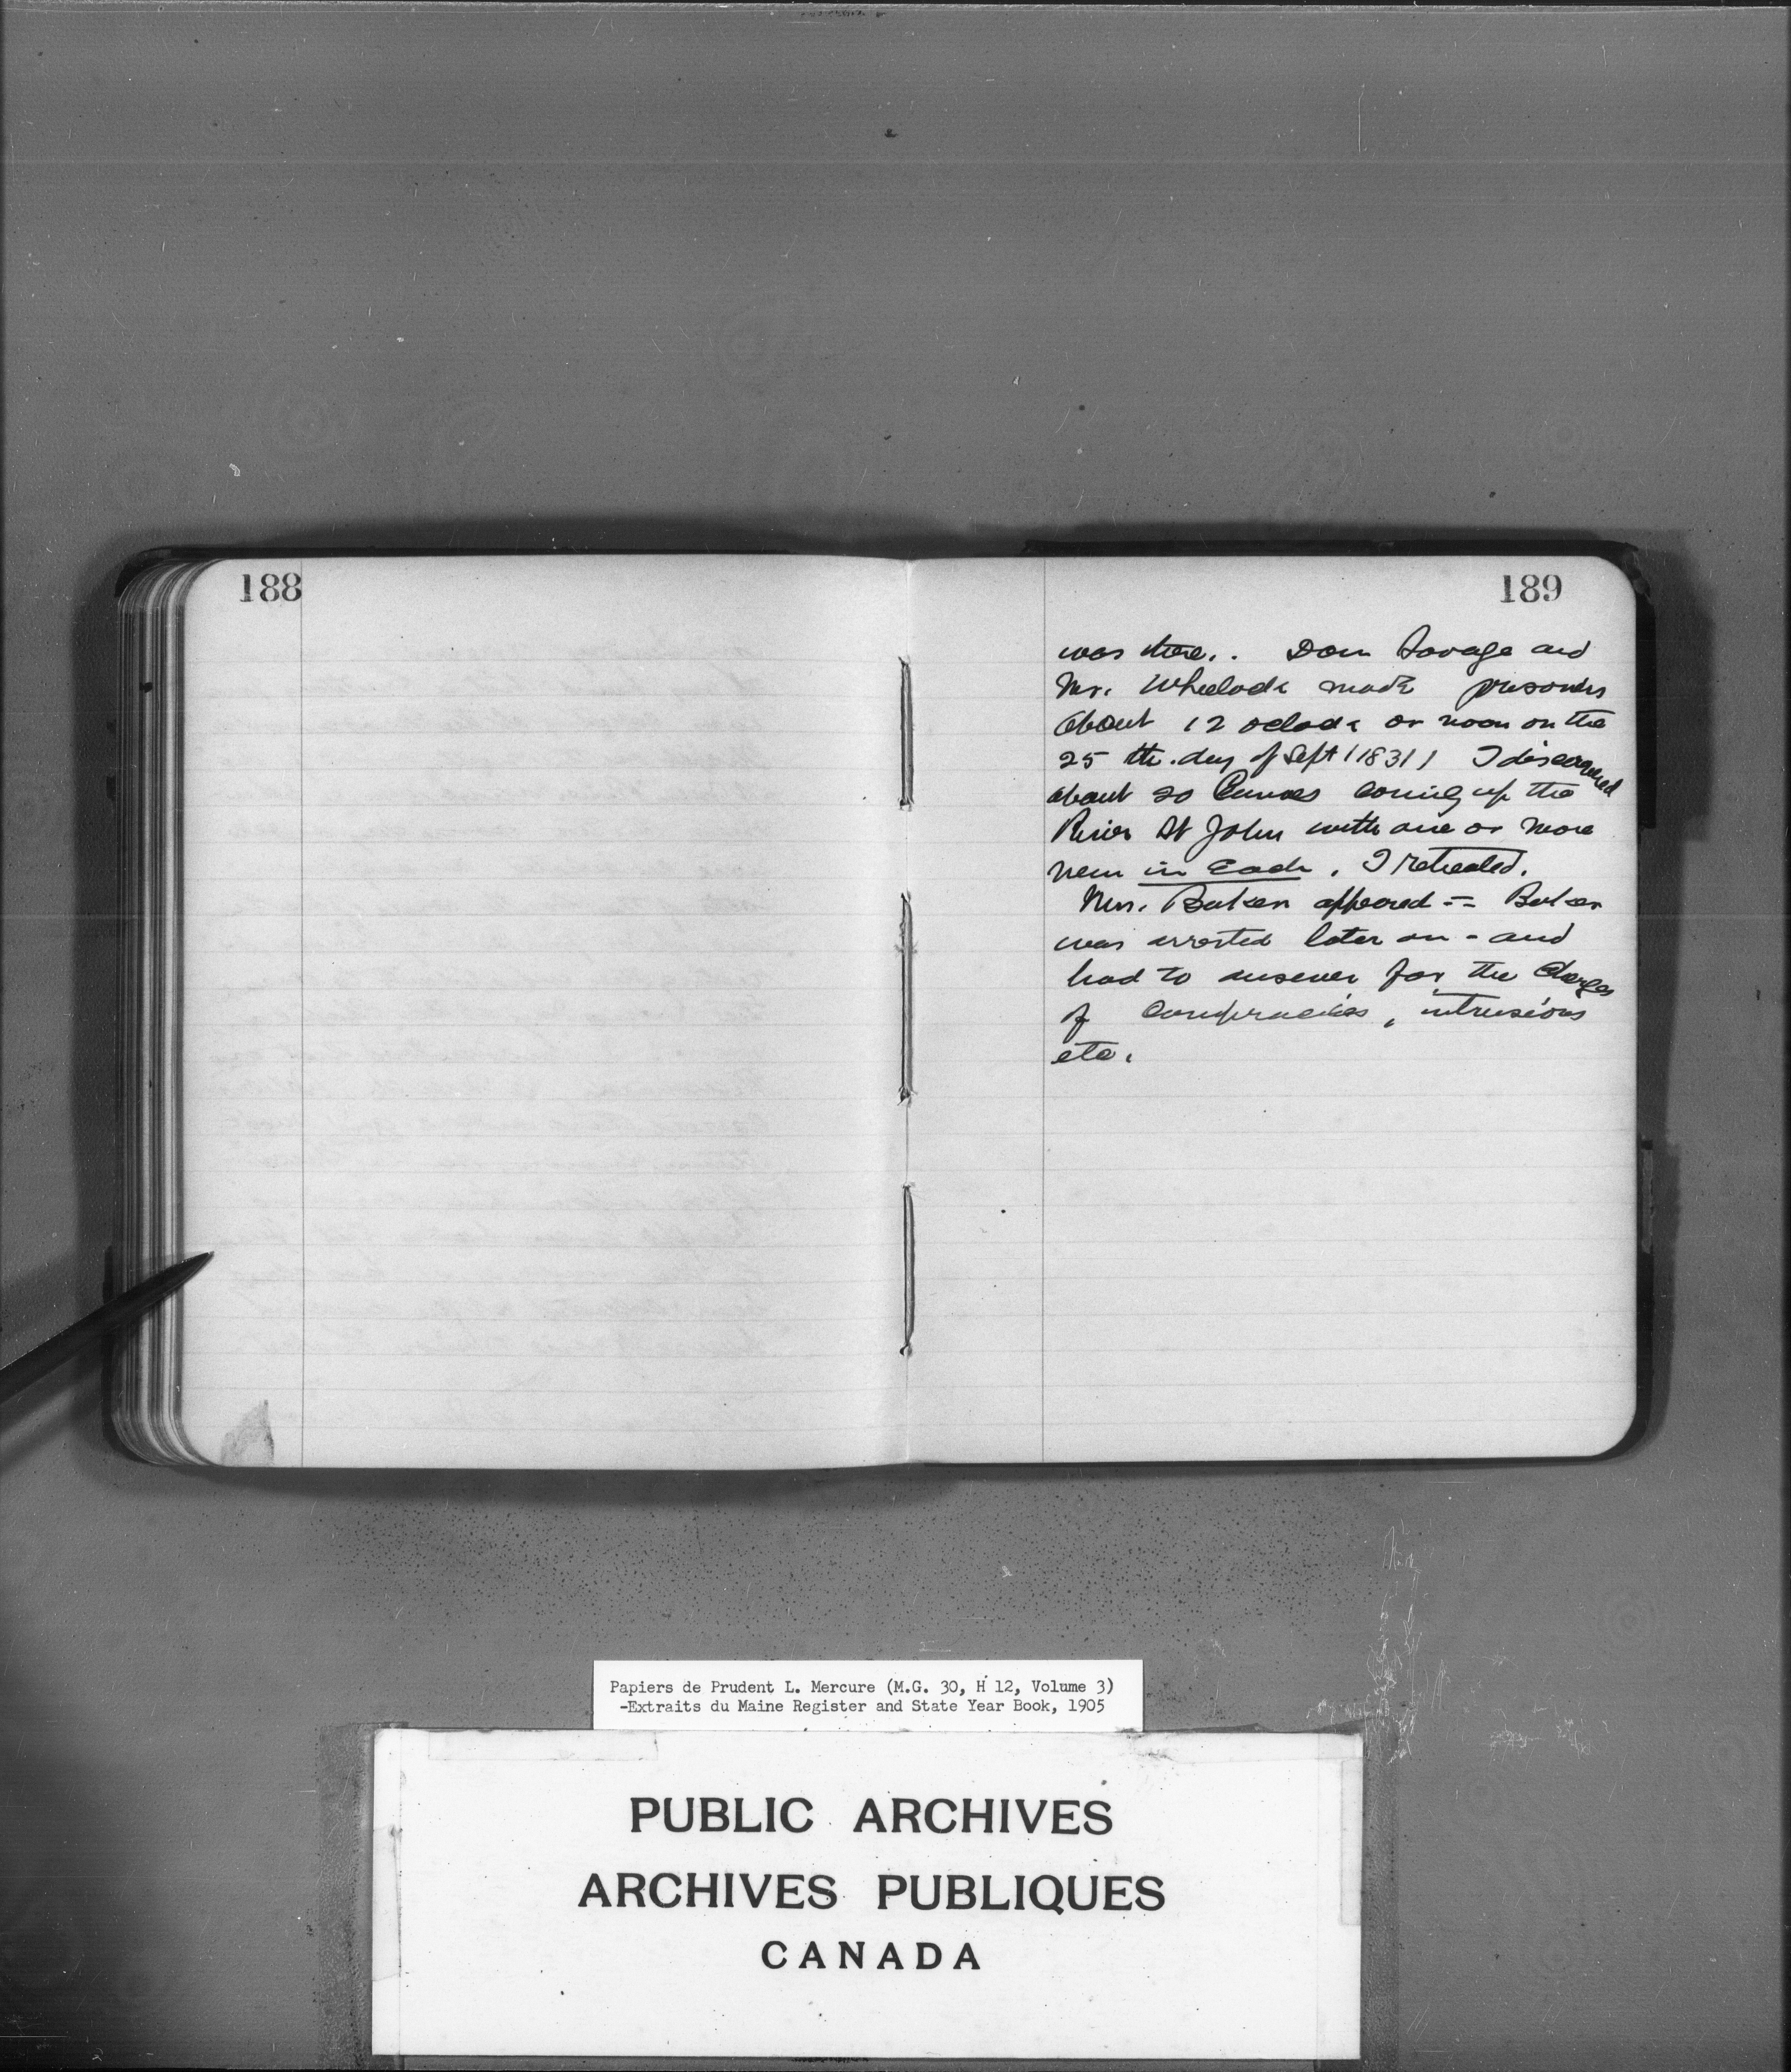 188
189
was there.. Dan Savage and
Mr. Wheelock made prisoners
about 12 oclock or noon on the
25 th. day of Sept (1831) I discovered
about 20 Canoes coming up the
River St John with one or more
men in Each. I retreated.
Mrs. Baker appeared == Baker
was arrested later on - and
had to answer for the Charges
of Conspiracies, intrusions
etc.
Papiers de Prudent L. Mercure (M.G. 30, H 12, Volume 3)
-Extraits du Maine Register and State Year Book, 1905
PUBLIC ARCHIVES
ARCHIVES PUBLIQUES
CANADA